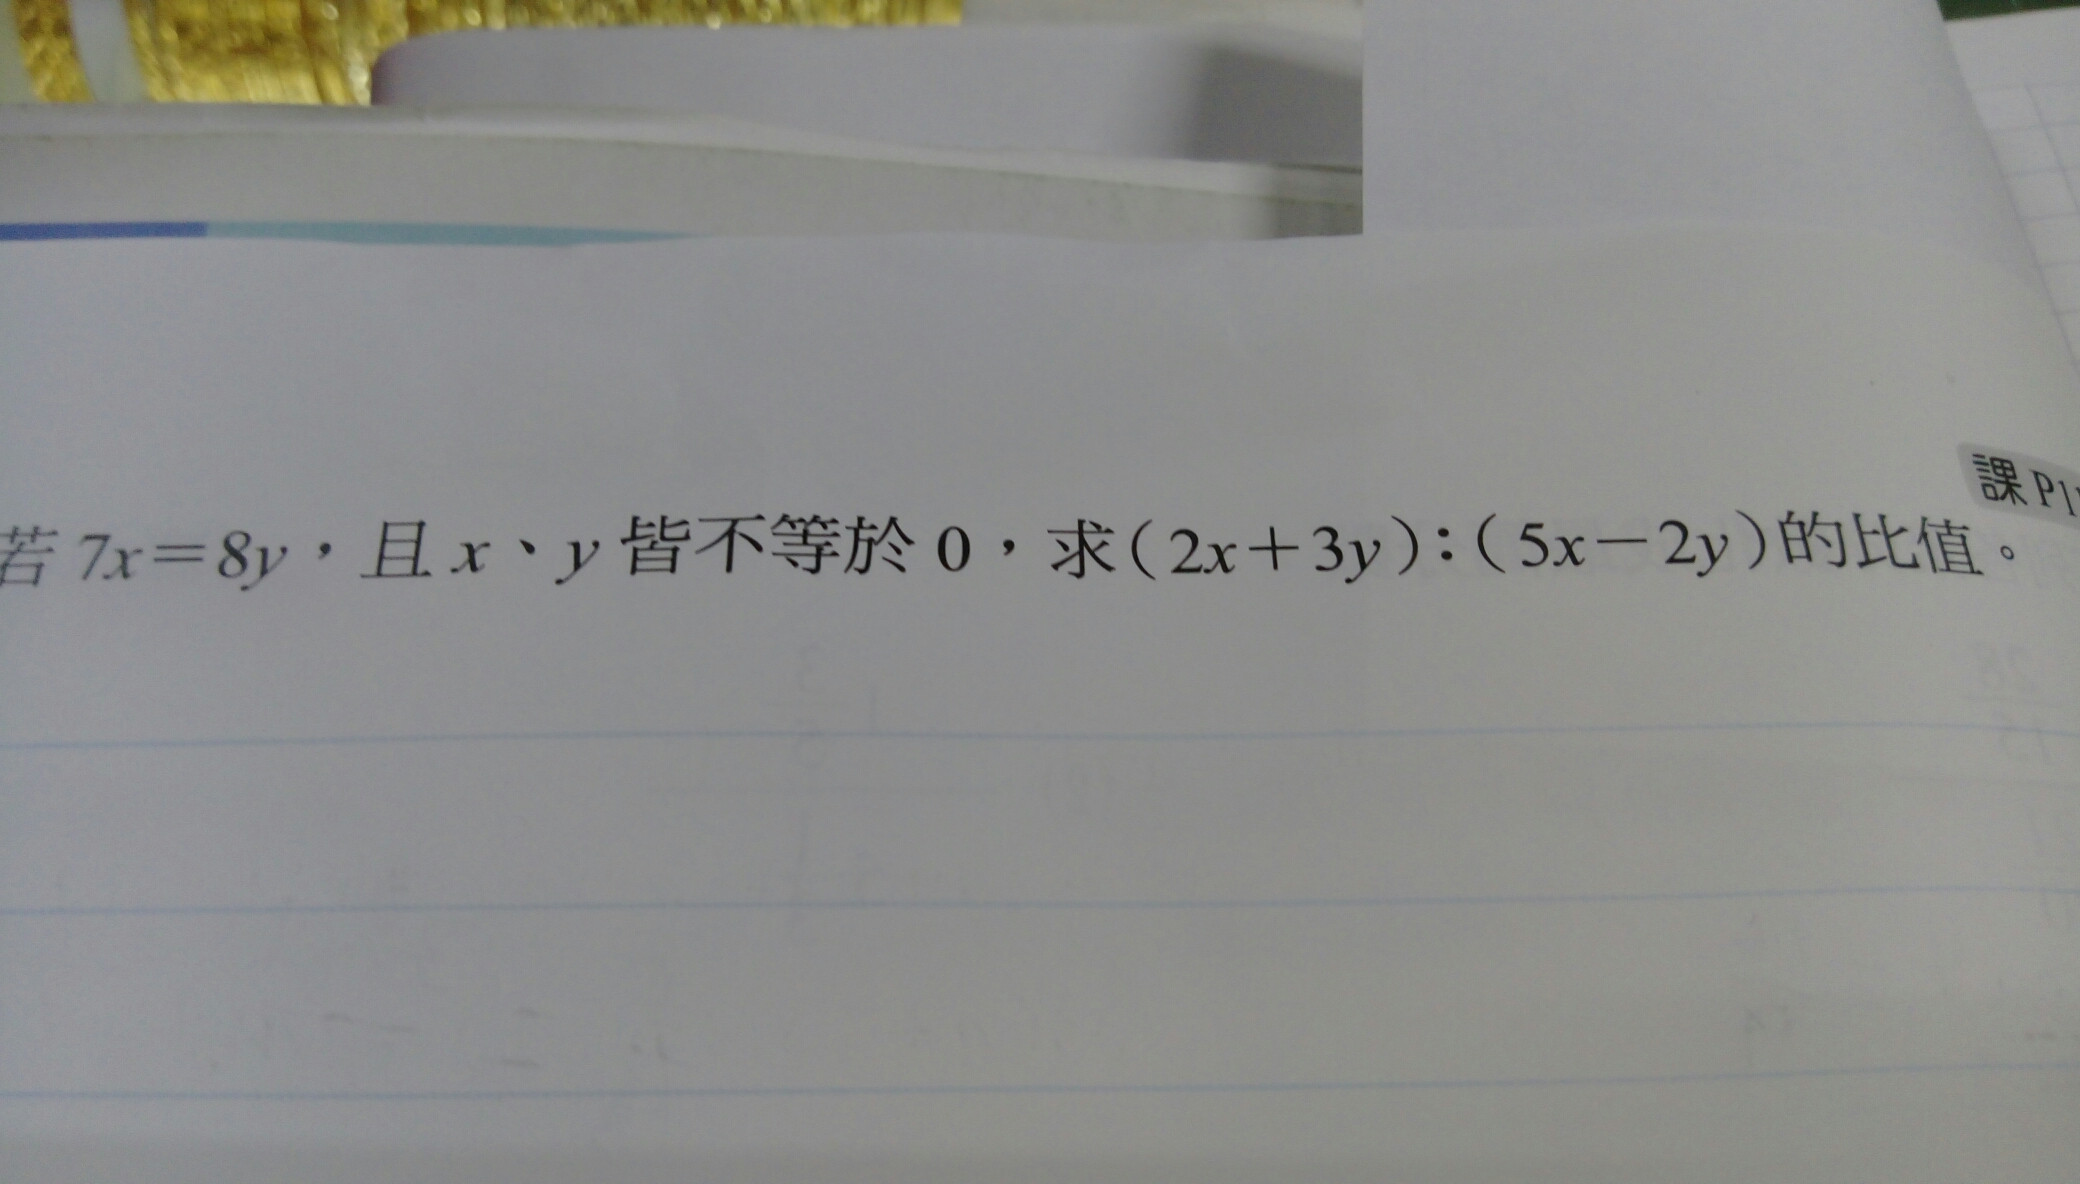 課P1
若 7x=8y，且 x、y 皆不等於 0，求(2x+3y):(5x-2y)的比值。